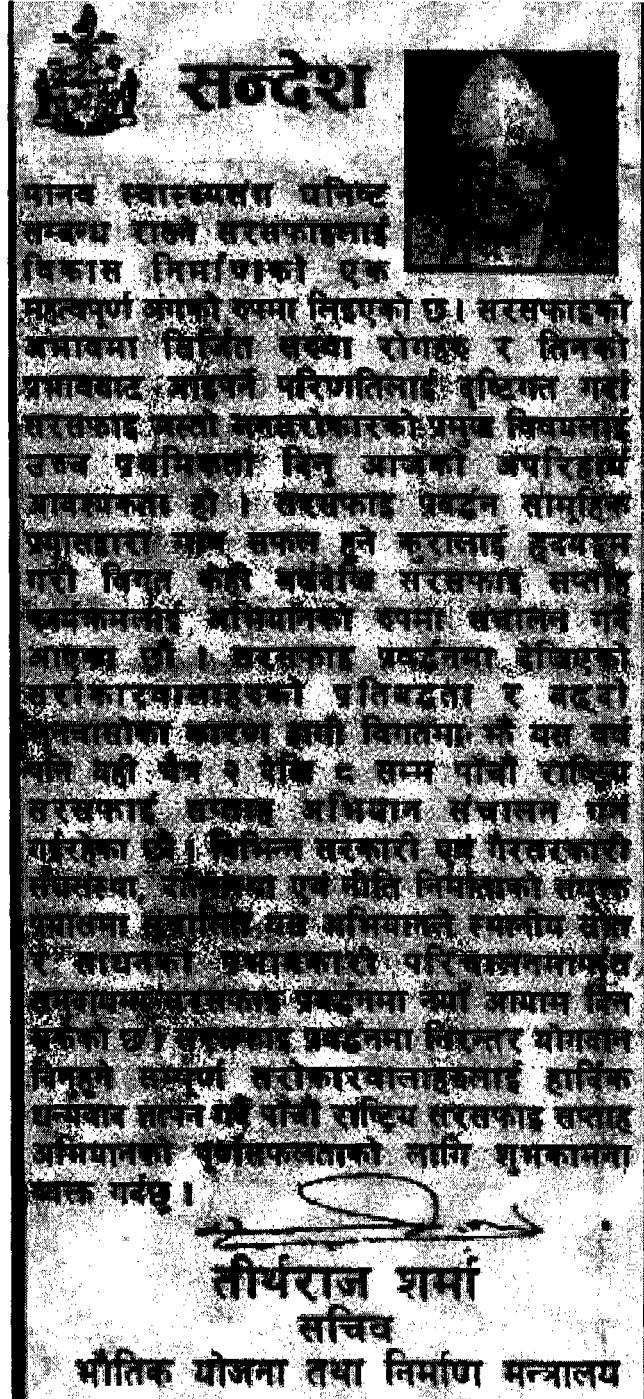 सन्देश
मानव स्वास्थ्यसंग घनिष्ट
सम्बन्ध राख्ने सरसफाइलाई
विकास निर्माणको एक
महत्वपूर्ण अंगको रुपमा लिइएको छ। सरसफाइको
अभावमा सिर्जित सरुवा रोगहरु र तिनको
प्रभावबाट आइपर्ने परिणतिलाई दृष्टिगत गर्दा
सरसफाइ जस्तो जनसरोकारको प्रमुख विषयलाई
उच्च प्राथमिकता दिनु आजको अपरिहार्य
आवश्यकता हो । सरसफाइ प्रवर्द्धन सामूहिक
प्रयासद्वारा मात्र सफल हुने कुरालाई हृदयङ्गम
गरी विगत केही वर्षदेखि सरसफाइ सप्ताह
कार्यक्रमलाई अभियानको रुपमा संचालन गर्दै
आएका छौं । सरसफाइ प्रवर्द्धनमा देखिएको
सरोकारवालाहरुको प्रतिबद्धता र बढ्दो
कारण हामी विगतमा झैं यस वर्ष
पनि यही चैत्र २ देखि ८ सम्म पाँचौ राष्ट्रिय
सरसफाई सप्ताह अभियान संचालन गर्न
गईरहेका छौं । विभिन्न सरकारी एवं गैरसरकारी
संघसंस्था, एवं नीति निर्माताको संयुक्त
प्रयासमा संचालित यस अभियानले स्थानीय स्रोत
र साधनको प्रभावकारी परिचालनमार्फत
सरसफाइ प्रवर्द्धनमा नयाँ आयाम दिन
सकेको छ। सरसफाइ प्रवर्द्धनमा निरन्तर योगदान
दिनुहुने सम्पूर्ण सरोकारवालाहरुलाई हार्दिक
धन्यवाद ज्ञापन गर्दै पाँचौ राष्ट्रिय सरसफाइ सप्ताह
अभियानको पूर्णसफलताको लागि शुभकामना
व्यक्त गर्दछु ।
तीर्थराज शर्मा
सचिव
भौतिक योजना तथा निर्माण मन्त्रालय